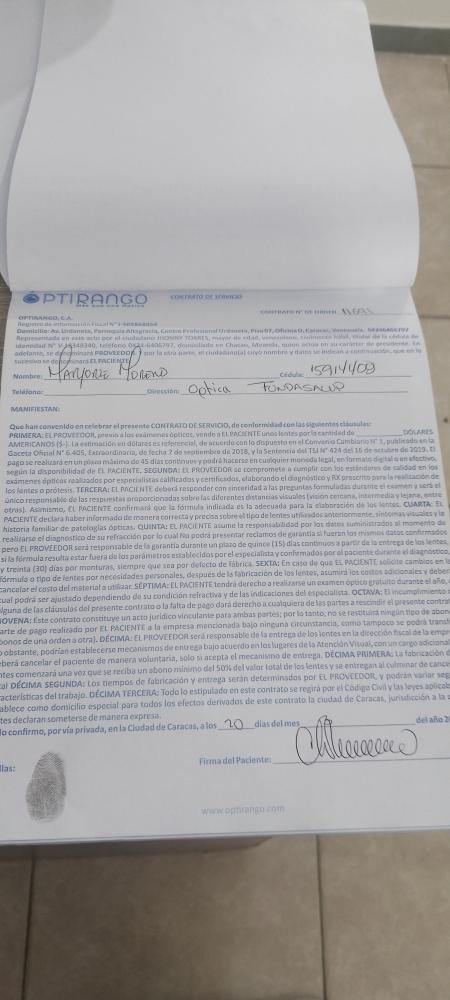 OPTIRANGO
CONTRATO DE SERVICIO
CONTRATO N° DE ORDEN
OPTIRANGO, C.A.
Registro de Información Fiscal N°
Domicilio: Av. Urdaneta, Parroquia Altagracia, Centro Profesional Urdaneta, Piso 07, Oficina D, Caracas, Venezuela.
Representada en este acto por el ciudadano JHONNY TORRES, mayor de edad, venezolano, civilmente hábil, titular de la cédula de
identidad N° teléfono domiciliado en Chacao, Miranda, quien actúa en su carácter de presidente. En
adelante, se denominará PROVEEDOR, por la otra parte, el ciudadano(a) cuyo nombre y datos se indican a continuación, que en lo
sucesivo se denominará EL PACIENTE.
Nombre: Marjorie Moreno Cédula:
Teléfono: Dirección: Optica FONDASALUD
MANIFIESTAN:
Que han convenido en celebrar el presente CONTRATO DE SERVICIO, de conformidad con las siguientes cláusulas:
PRIMERA: EL PROVEEDOR, previo a los exámenes ópticos, vende a EL PACIENTE unos lentes por la cantidad de DÓLARES
AMERICANOS ($-). La estimación en dólares es referencial, de acuerdo con lo dispuesto en el Convenio Cambiario N° 1, publicado en la
Gaceta Oficial N° 6.405, Extraordinaria, de fecha 7 de septiembre de 2018, y la Sentencia del TSJ N° 424 del 16 de octubre de 2019. El
pago se realizará en un plazo máximo de 45 días continuos y podrá hacerse en cualquier moneda legal, en formato digital o en efectivo,
según la disponibilidad de EL PACIENTE. SEGUNDA: EL PROVEEDOR se compromete a cumplir con los estándares de calidad en los
exámenes ópticos realizados por especialistas calificados y certificados, elaborando el diagnóstico y RX prescrito para la realización de
los lentes o prótesis. TERCERA: EL PACIENTE deberá responder con sinceridad a las preguntas formuladas durante el examen y será el
único responsable de las respuestas proporcionadas sobre las diferentes distancias visuales (visión cercana, intermedia y lejana, entre
otras). Asimismo, EL PACIENTE confirmará que la fórmula indicada es la adecuada para la elaboración de los lentes. CUARTA: EL
PACIENTE declara haber informado de manera correcta y precisa sobre el tipo de lentes utilizados anteriormente, síntomas visuales y la
historia familiar de patologías ópticas. QUINTA: EL PACIENTE asume la responsabilidad por los datos suministrados al momento de
realizarse el diagnóstico de su refracción por lo cual No podrá presentar reclamos de garantía si fueran los mismos datos confirmados
pero EL PROVEEDOR será responsable de la garantía durante un plazo de quince (15) días continuos a partir de la entrega de los lentes,
si la fórmula resulta estar fuera de los parámetros establecidos por el especialista y confirmados por el paciente durante el diagnóstico,
y treinta (30) días por monturas, siempre que sea por defecto de fábrica. SEXTA: En caso de que EL PACIENTE solicite cambios en la
fórmula o tipo de lentes por necesidades personales, después de la fabricación de los lentes, asumirá los costos adicionales y deberá
cancelar el costo del material a utilizar. SÉPTIMA: EL PACIENTE tendrá derecho a realizarse un examen óptico gratuito durante el año,
cual podrá ser ajustado dependiendo de su condición refractiva y de las indicaciones del especialista. OCTAVA: El incumplimiento
alguna de las cláusulas del presente contrato o la falta de pago dará derecho a cualquiera de las partes a rescindir el presente contrato
NOVENA: Este contrato constituye un acto jurídico vinculante para ambas partes; por lo tanto, no se restituirá ningún tipo de abono
parte de pago realizado por EL PACIENTE a la empresa mencionada bajo ninguna circunstancia, como tampoco se podrá transf
bonos de una orden a otra). DÉCIMA: EL PROVEEDOR será responsable de la entrega de los lentes en la dirección fiscal de la empr
o obstante, podrían establecerse mecanismos de entrega bajo acuerdo en los lugares de la Atención Visual, con un cargo adiciona
eberá cancelar el paciente de manera voluntaria, solo si acepta el mecanismo de entrega. DÉCIMA PRIMERA: La fabricación d
ntes comenzará una vez que se reciba un abono mínimo del 50% del valor total de los lentes y se entregan al culminar de cance
tal DÉCIMA SEGUNDA: Los tiempos de fabricación y entrega serán determinados por EL PROVEEDOR, y podrán variar seg
racterísticas del trabajo. DÉCIMA TERCERA: Todo lo estipulado en este contrato se regirá por el Código Civil y las leyes aplicab
ablece como domicilio especial para todos los efectos derivados de este contrato la ciudad de Caracas, jurisdicción a la c
tes declaran someterse de manera expresa.
lo confirmo, por vía privada, en la Ciudad de Caracas, a los 20 días del mes del año 2
Firma del Paciente:
llas:
www.optirango.com